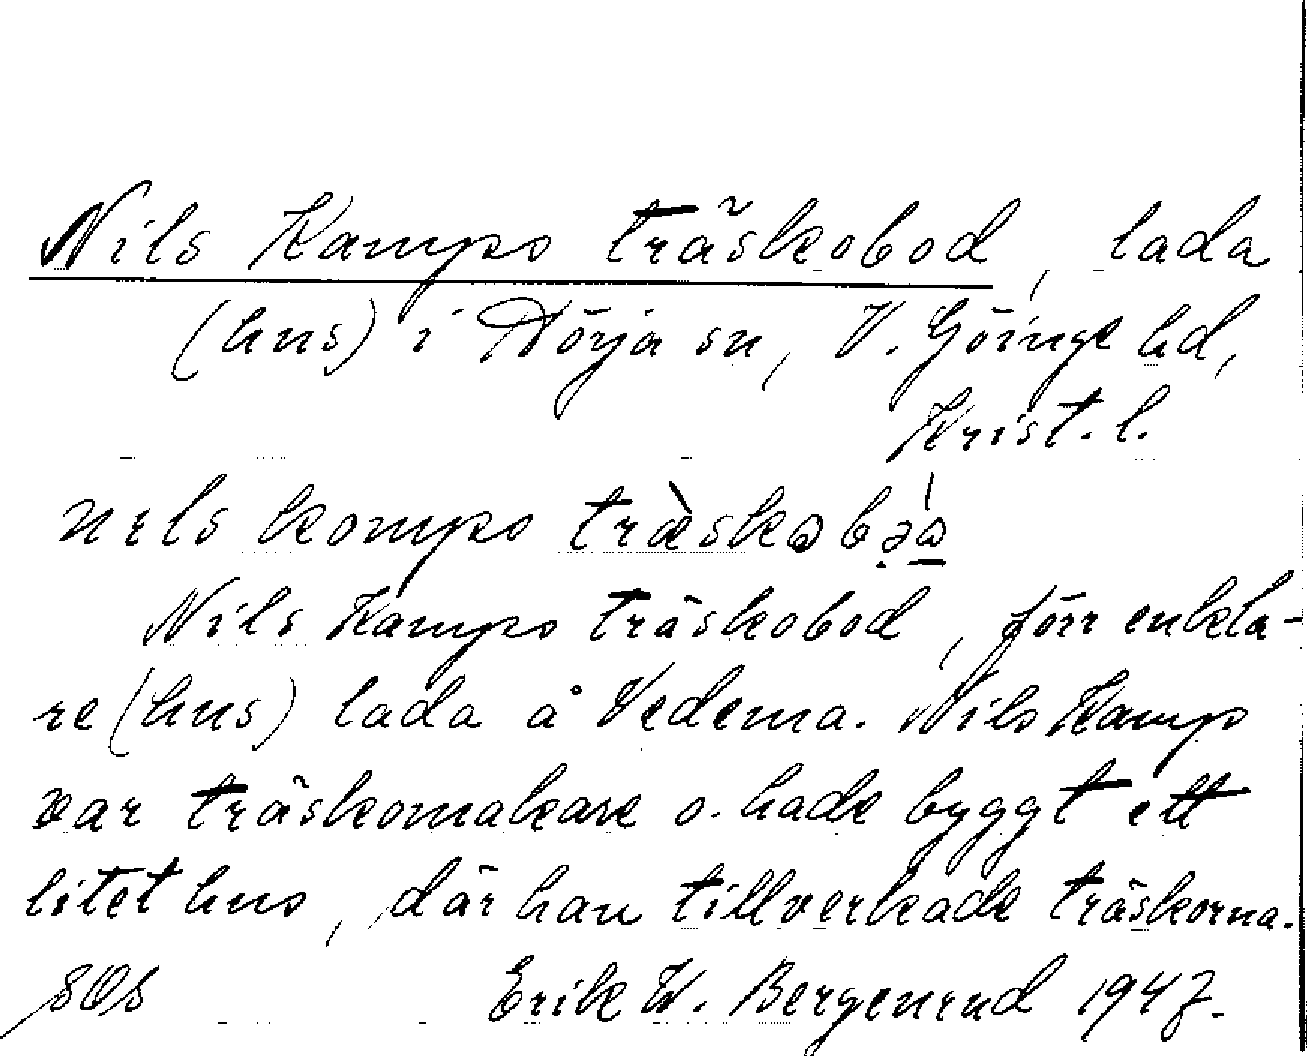 Nils Kamps träskobod, lada
(hus) i Nörja sn, V. Göinge hd,
Krist. l.
nils komps
Nils Kamps träskobod, förr enkla-
re (hus) lada å Vedema. Nils Kamp
var träskomakare o. hade byggt ett
litet hus, där han tillverkade träskorna.
Erik W. Bergenrud 1947.